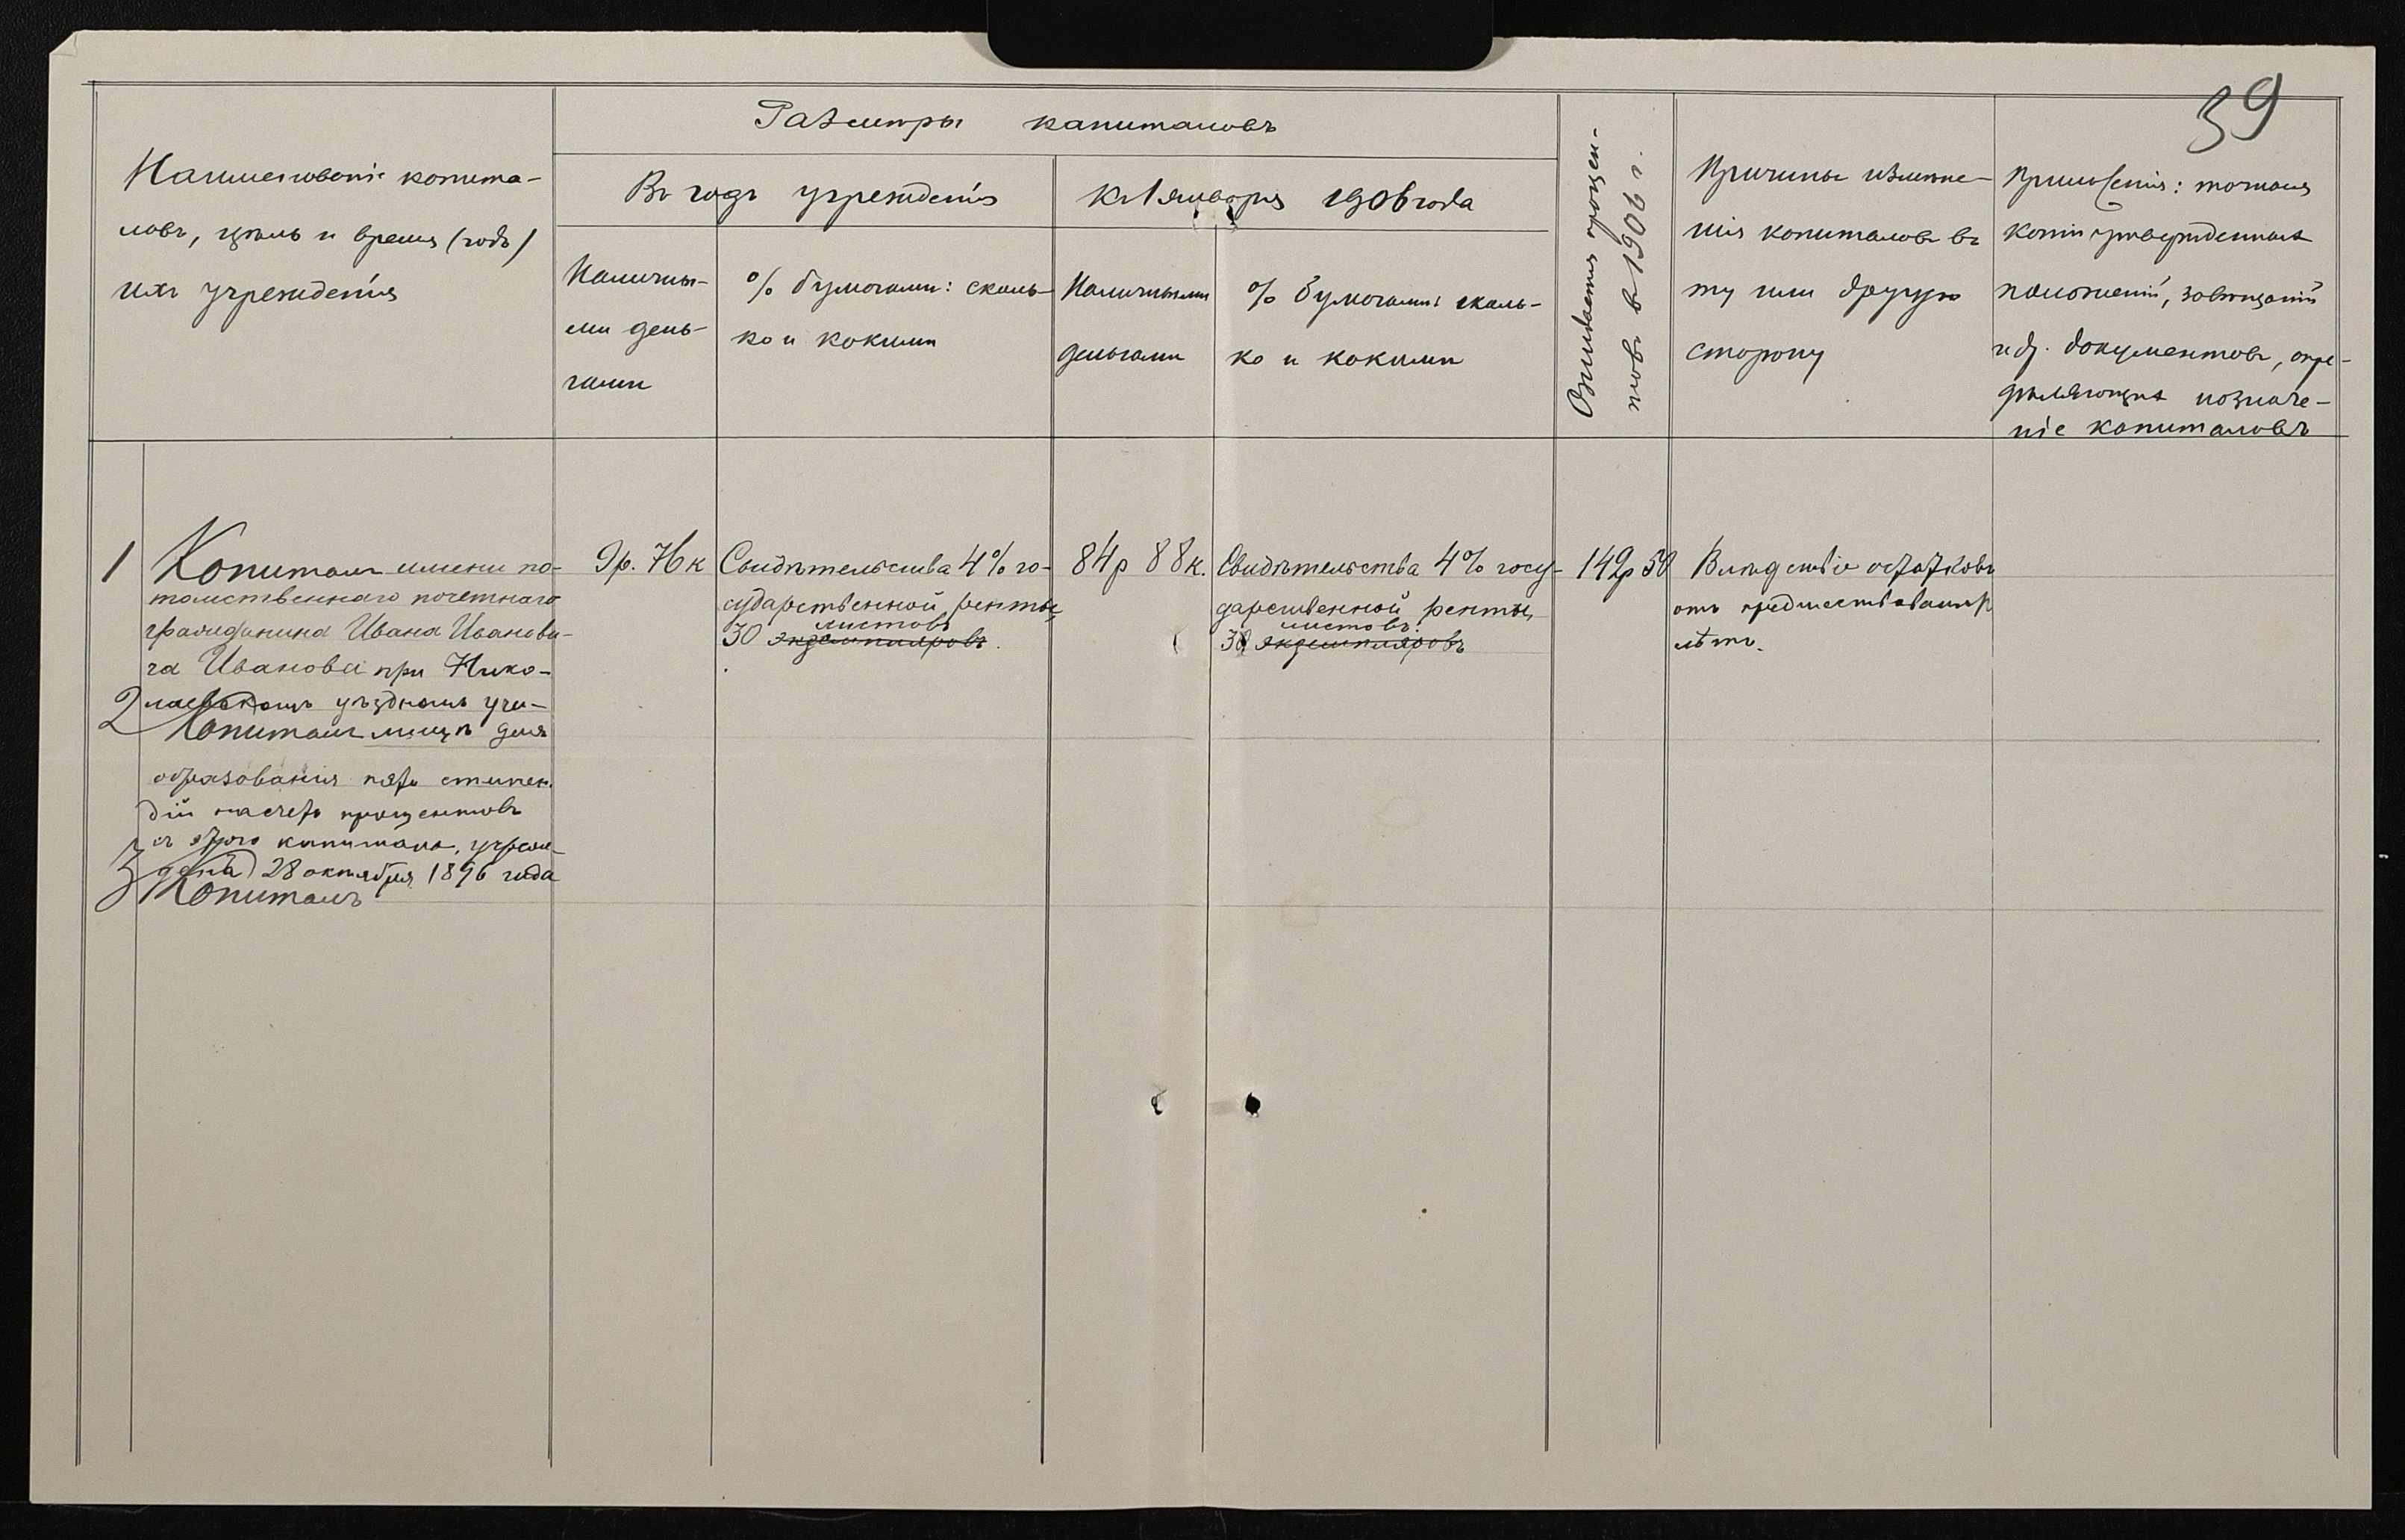 39
Наименованіе капита-
ловъ, цѣль и время (годъ)
ихъ учрежденія
Размѣры капиталовъ
Въ годъ учрежденія
Наличны-
ми день-
гами
% бумагами: сколь-
ко и какими
Къ 1 января 1906 года
Наличными
деньгами
% бумагами: сколь-
ко и какими
Ожидается процен-
товъ въ 1906 г.
Причины измѣне-
нія капиталовъ въ
ту или другую
сторону
Примѣчанія: точныя
копіи утвержденныхъ
положеній, завѣщаній
и др. документовъ, опре-
дѣляющихъ назначе-
ніе капиталовъ
1
Капиталъ имени по-
томственнаго почетнаго
гражданина Ивана Иванови-
ча Иванова при Нико-
лаевскомъ уѣздномъ учи-
2
Капиталъ лищѣ для
образованія пяти стипен-
дій на счетъ процентовъ
съ этого капитала, учреж-
денъ 28 октября 1896 года
3
Капиталъ
9р. 76 к
Свидѣтельства 4% го-
сударственной ренты,
листовъ
30 экземпляровъ.
84р 88к.
Свидѣтельства 4% госу-
дарственной ренты,
листовъ.
30 экземпляровъ
142р 50
Вслѣдствіе остатковъ
отъ предшествовавшихъ
лѣтъ.